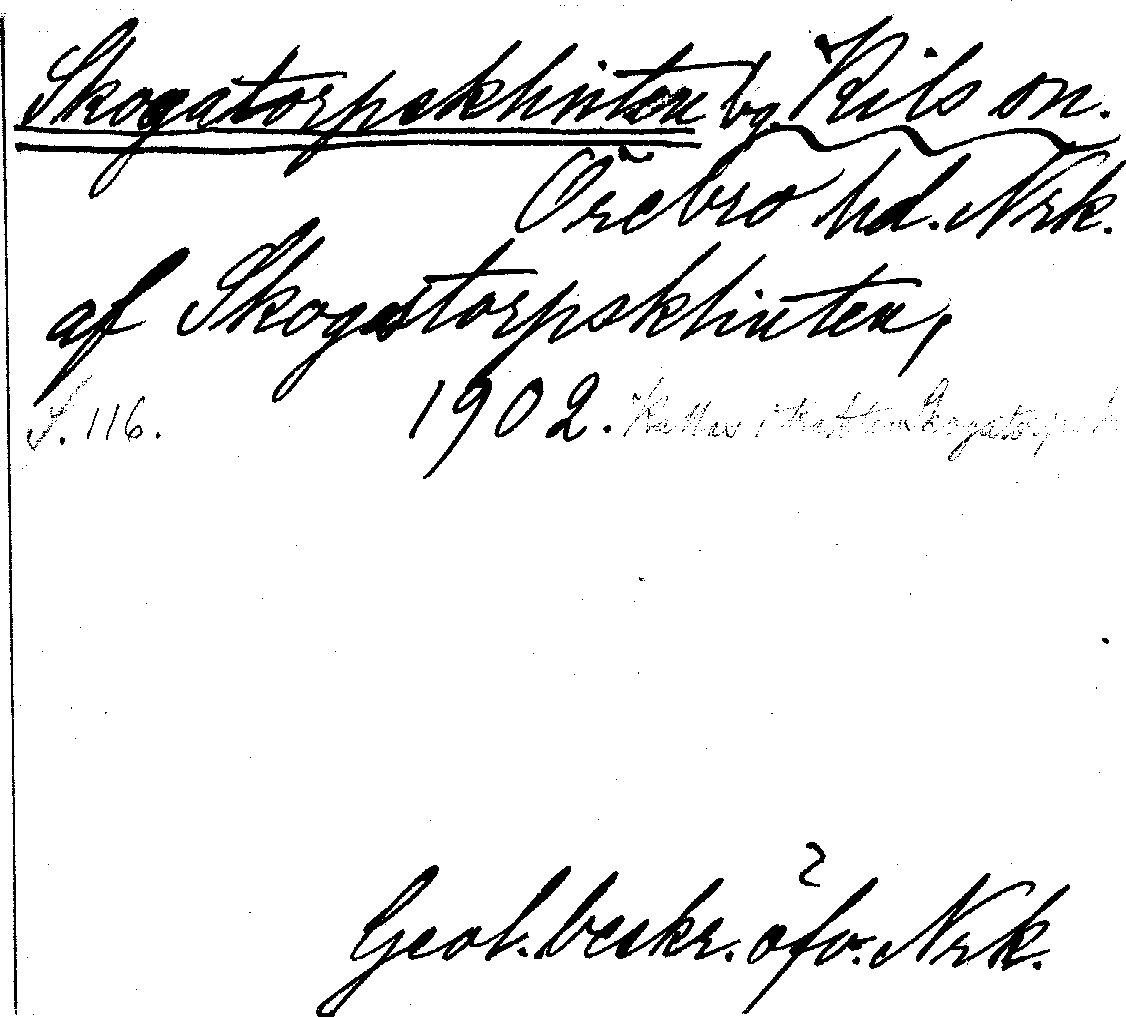 Skogatorpsklinten bg. Kils sn.
Örebro hd. Nrk.
af Skogatorpsklinten,
S. 116. 1902. Kallas i Skogatorps
Geol. beskr. öfv. Nrk.